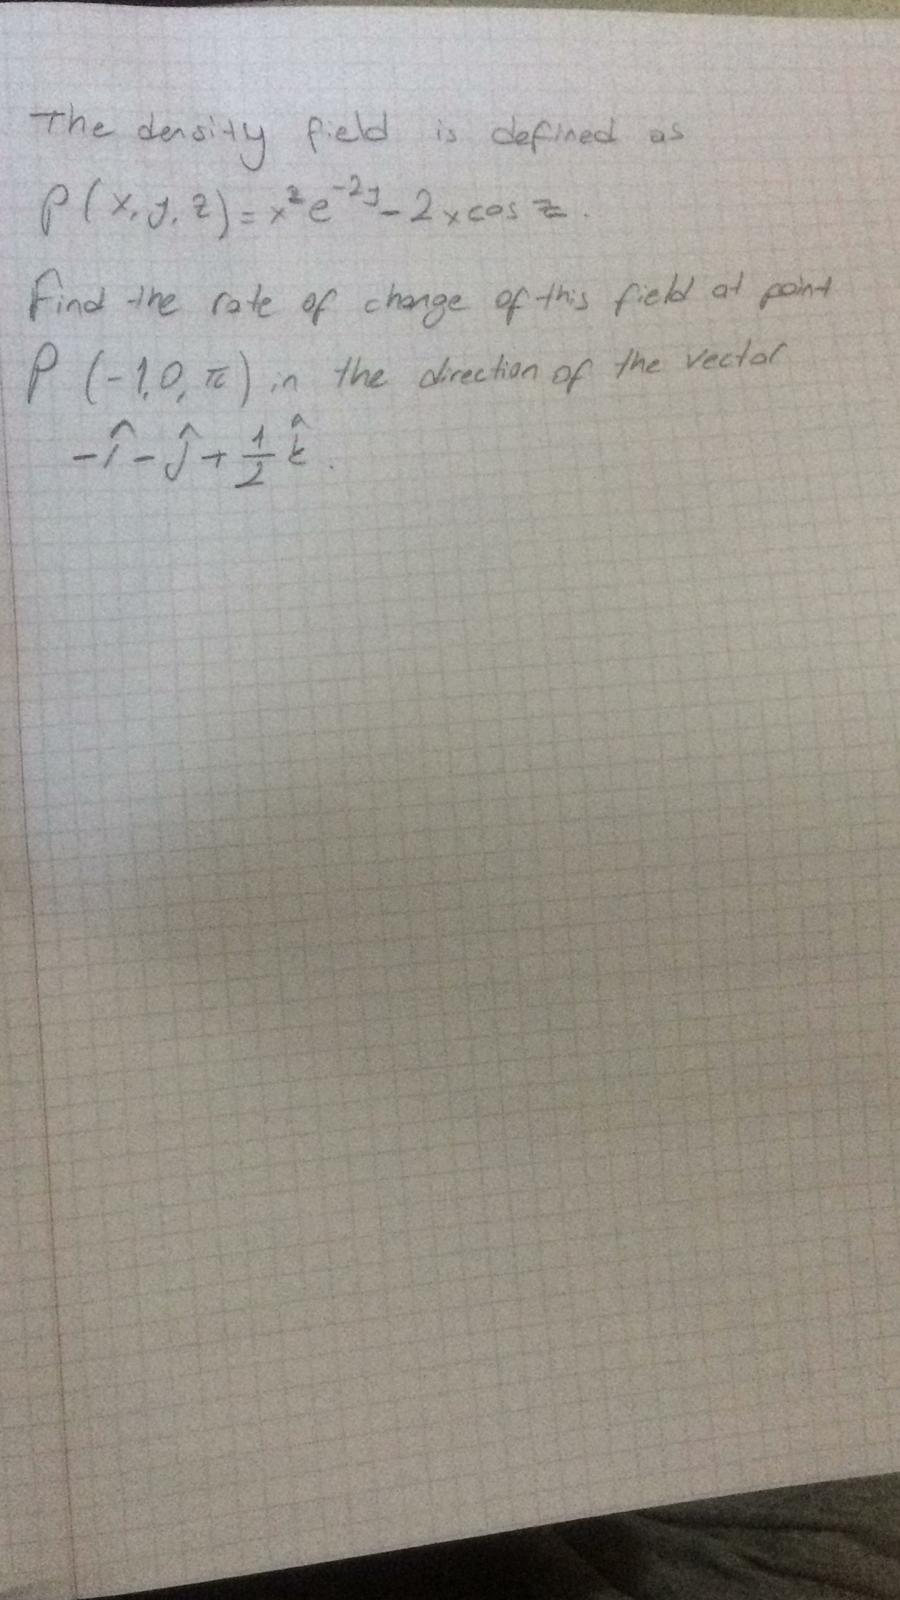 The density field is defined as
ρ(x, y, z) = x²e⁻²ʸ - 2x cos z.
Find the rate of change of this field at point
P (-1, 0, π) in the direction of the vector
-î - ĵ + 1/2 k̂.